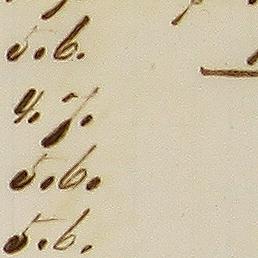 5.6.
4.7.
5.6.
5.6.